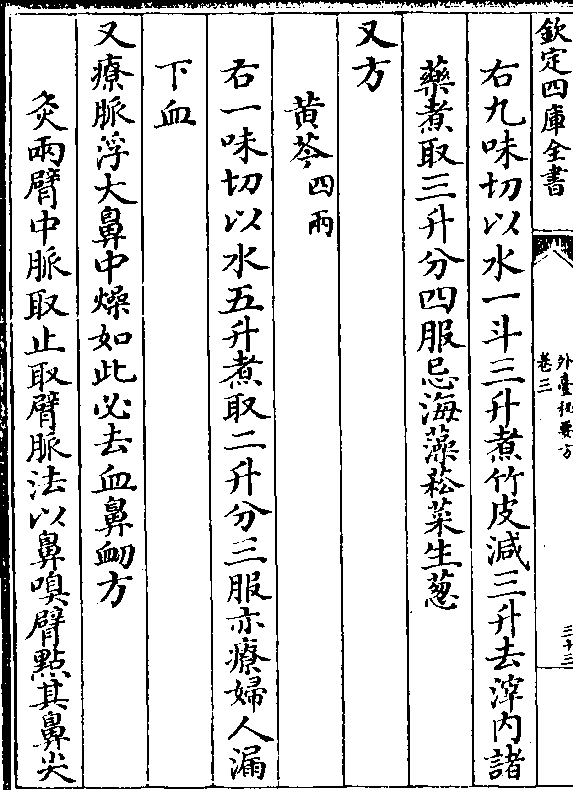 欽定四庫全書
外臺秘要方
卷三
三十三
右九味切以水一斗三升煮竹皮減三升去滓内諸
藥煮取三升分四服忌海藻菘菜生葱
又方
黄芩四兩
右一味切以水五升煮取二升分三服亦療婦人漏
下血
又療脈浮大鼻中燥如此必去血鼻衂方
灸兩臂中脈取止取臂脈法以鼻嗅臂點其鼻尖